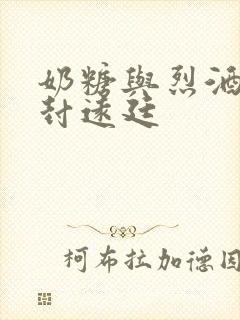 奶糖與烈酒
封遠廷
柯布拉加德因